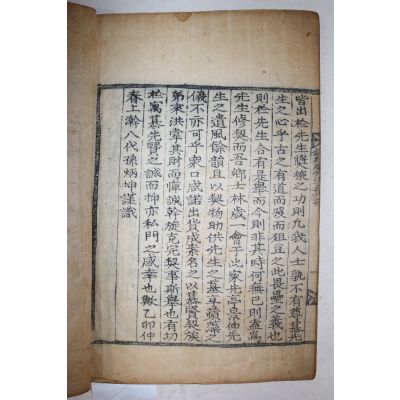 皆出於先生奬掖之功則凡我人士孰不有尊慕先
生之心乎古之有道而沒而俎豆之此畏壘之義也
則於先生合有是擧而今則非其時何無已則盍爲
先生修契而吾鄕士林歲一會于此家先亭泉仰先
生之遺風餘韻且以契物助供先生之墓享蘋藻之
儀不亦可乎衆口咸諾出貨成案名之以慕賢契族
弟來洪宰其財而憚誠幹旋克完契事斯擧也有切
於寓慕先賢之誠而抑亦私門之感幸也歟乙卯仲
春上澣八代孫炳坤謹識